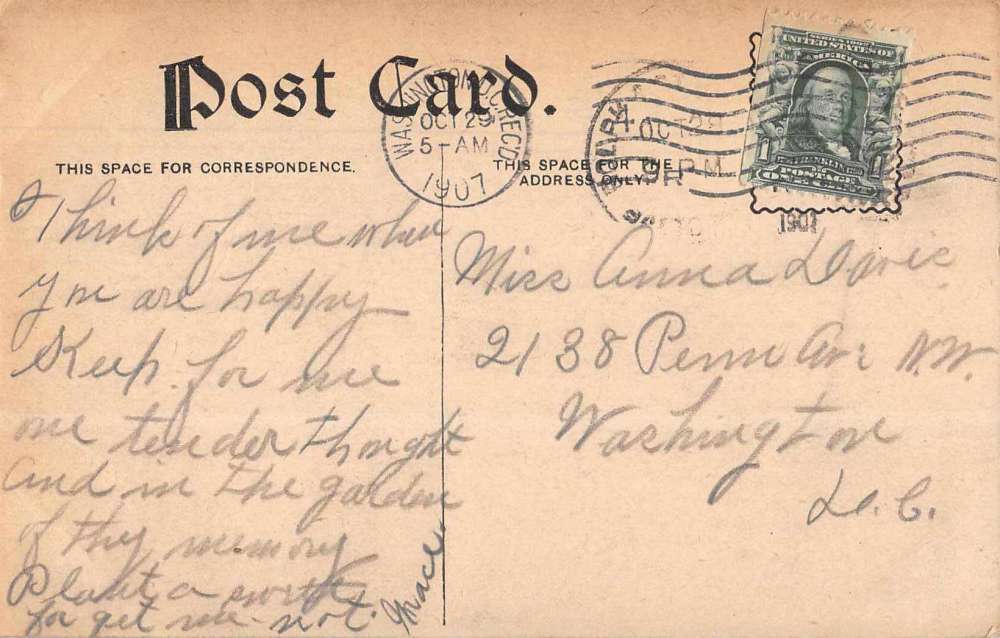 Post Card.
THIS SPACE FOR CORRESPONDENCE.
THIS SPACE FOR THE
ADDRESS ONLY.
WASHINGTON, D.C. REC'D
OCT 29
5-AM
1907
OCT 28
9 PM
1907
SERIES 1902
UNITED STATES OF
AMERICA
FRANKLIN
POSTAGE
ONE CENT
Think of me when
you are happy
Keep for me
one tender thought
and in the garden
of thy memory
Plant a
for get me-not.
Grace
Miss Anna Davis
2138 Penn Av: N.W.
Washington
D. C.